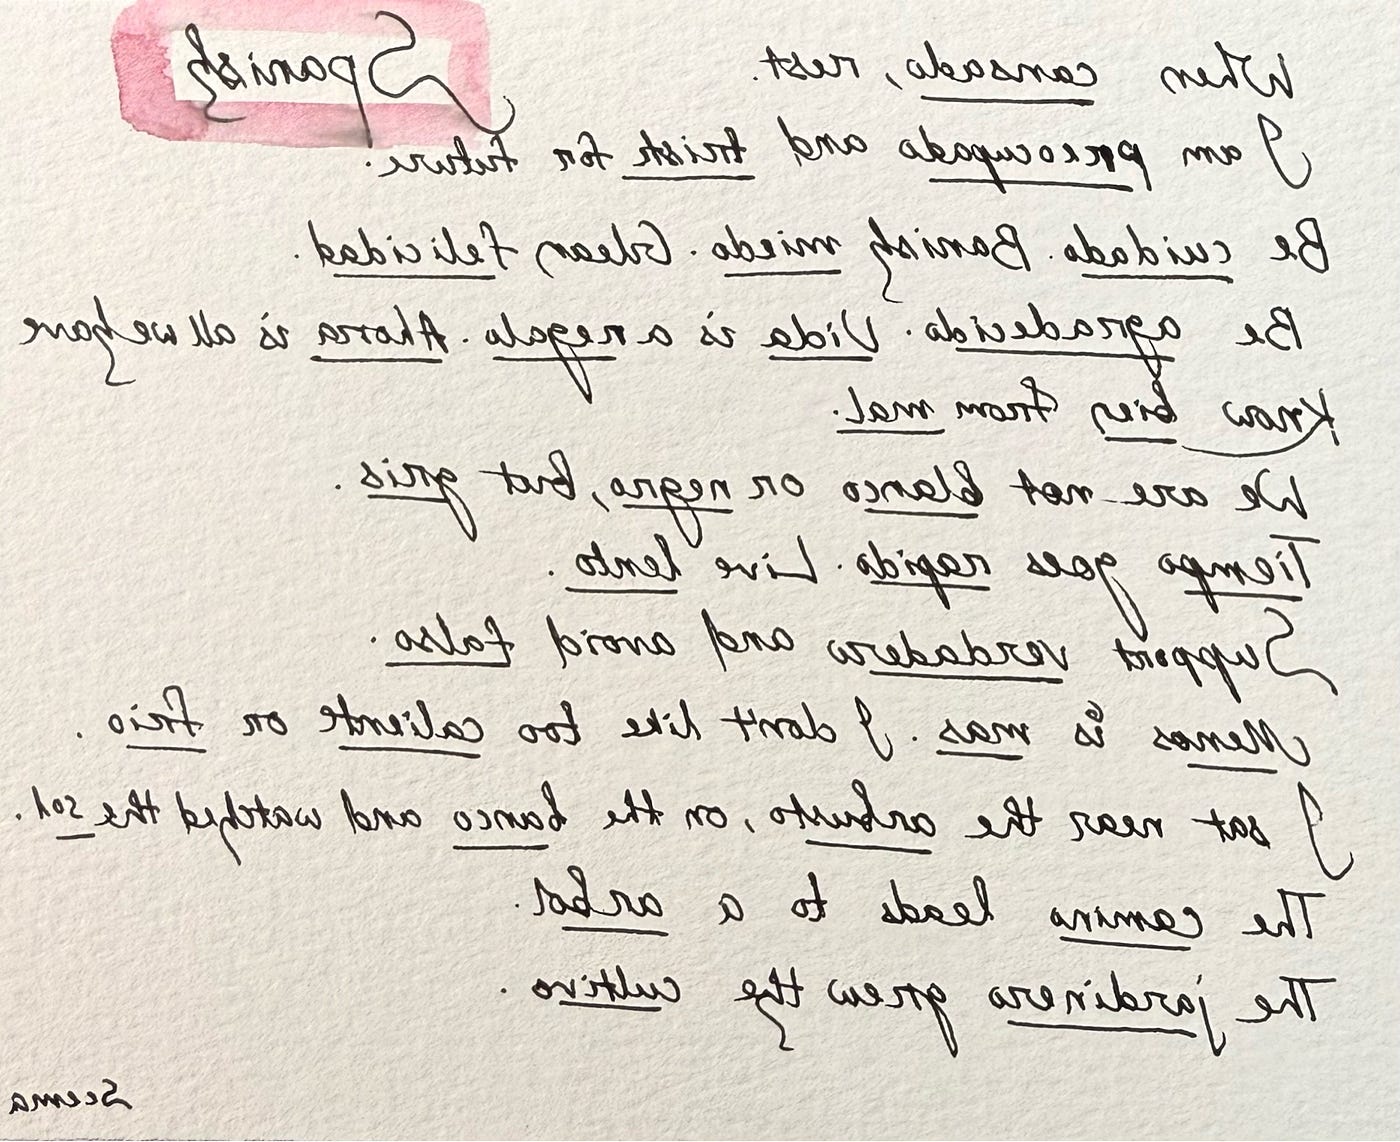 Spanish
When cansado, rest.
I am preocupado and triste for future.
Be cuidado. Banish miedo. Glean felicidad.
Be agradecido. Vida is a regalo. Ahora is all we have
Know bien from mal.
We are not blanco or negro, but gris.
Tiempo goes rapido. Live lento.
Support verdadero and avoid falso.
Menos is mas. I don't like too caliente or frio.
I sat near the arbusto, on the banco and watched the sol.
The camino leads to a arbol.
The jardinero grew the cultivo.
Seema